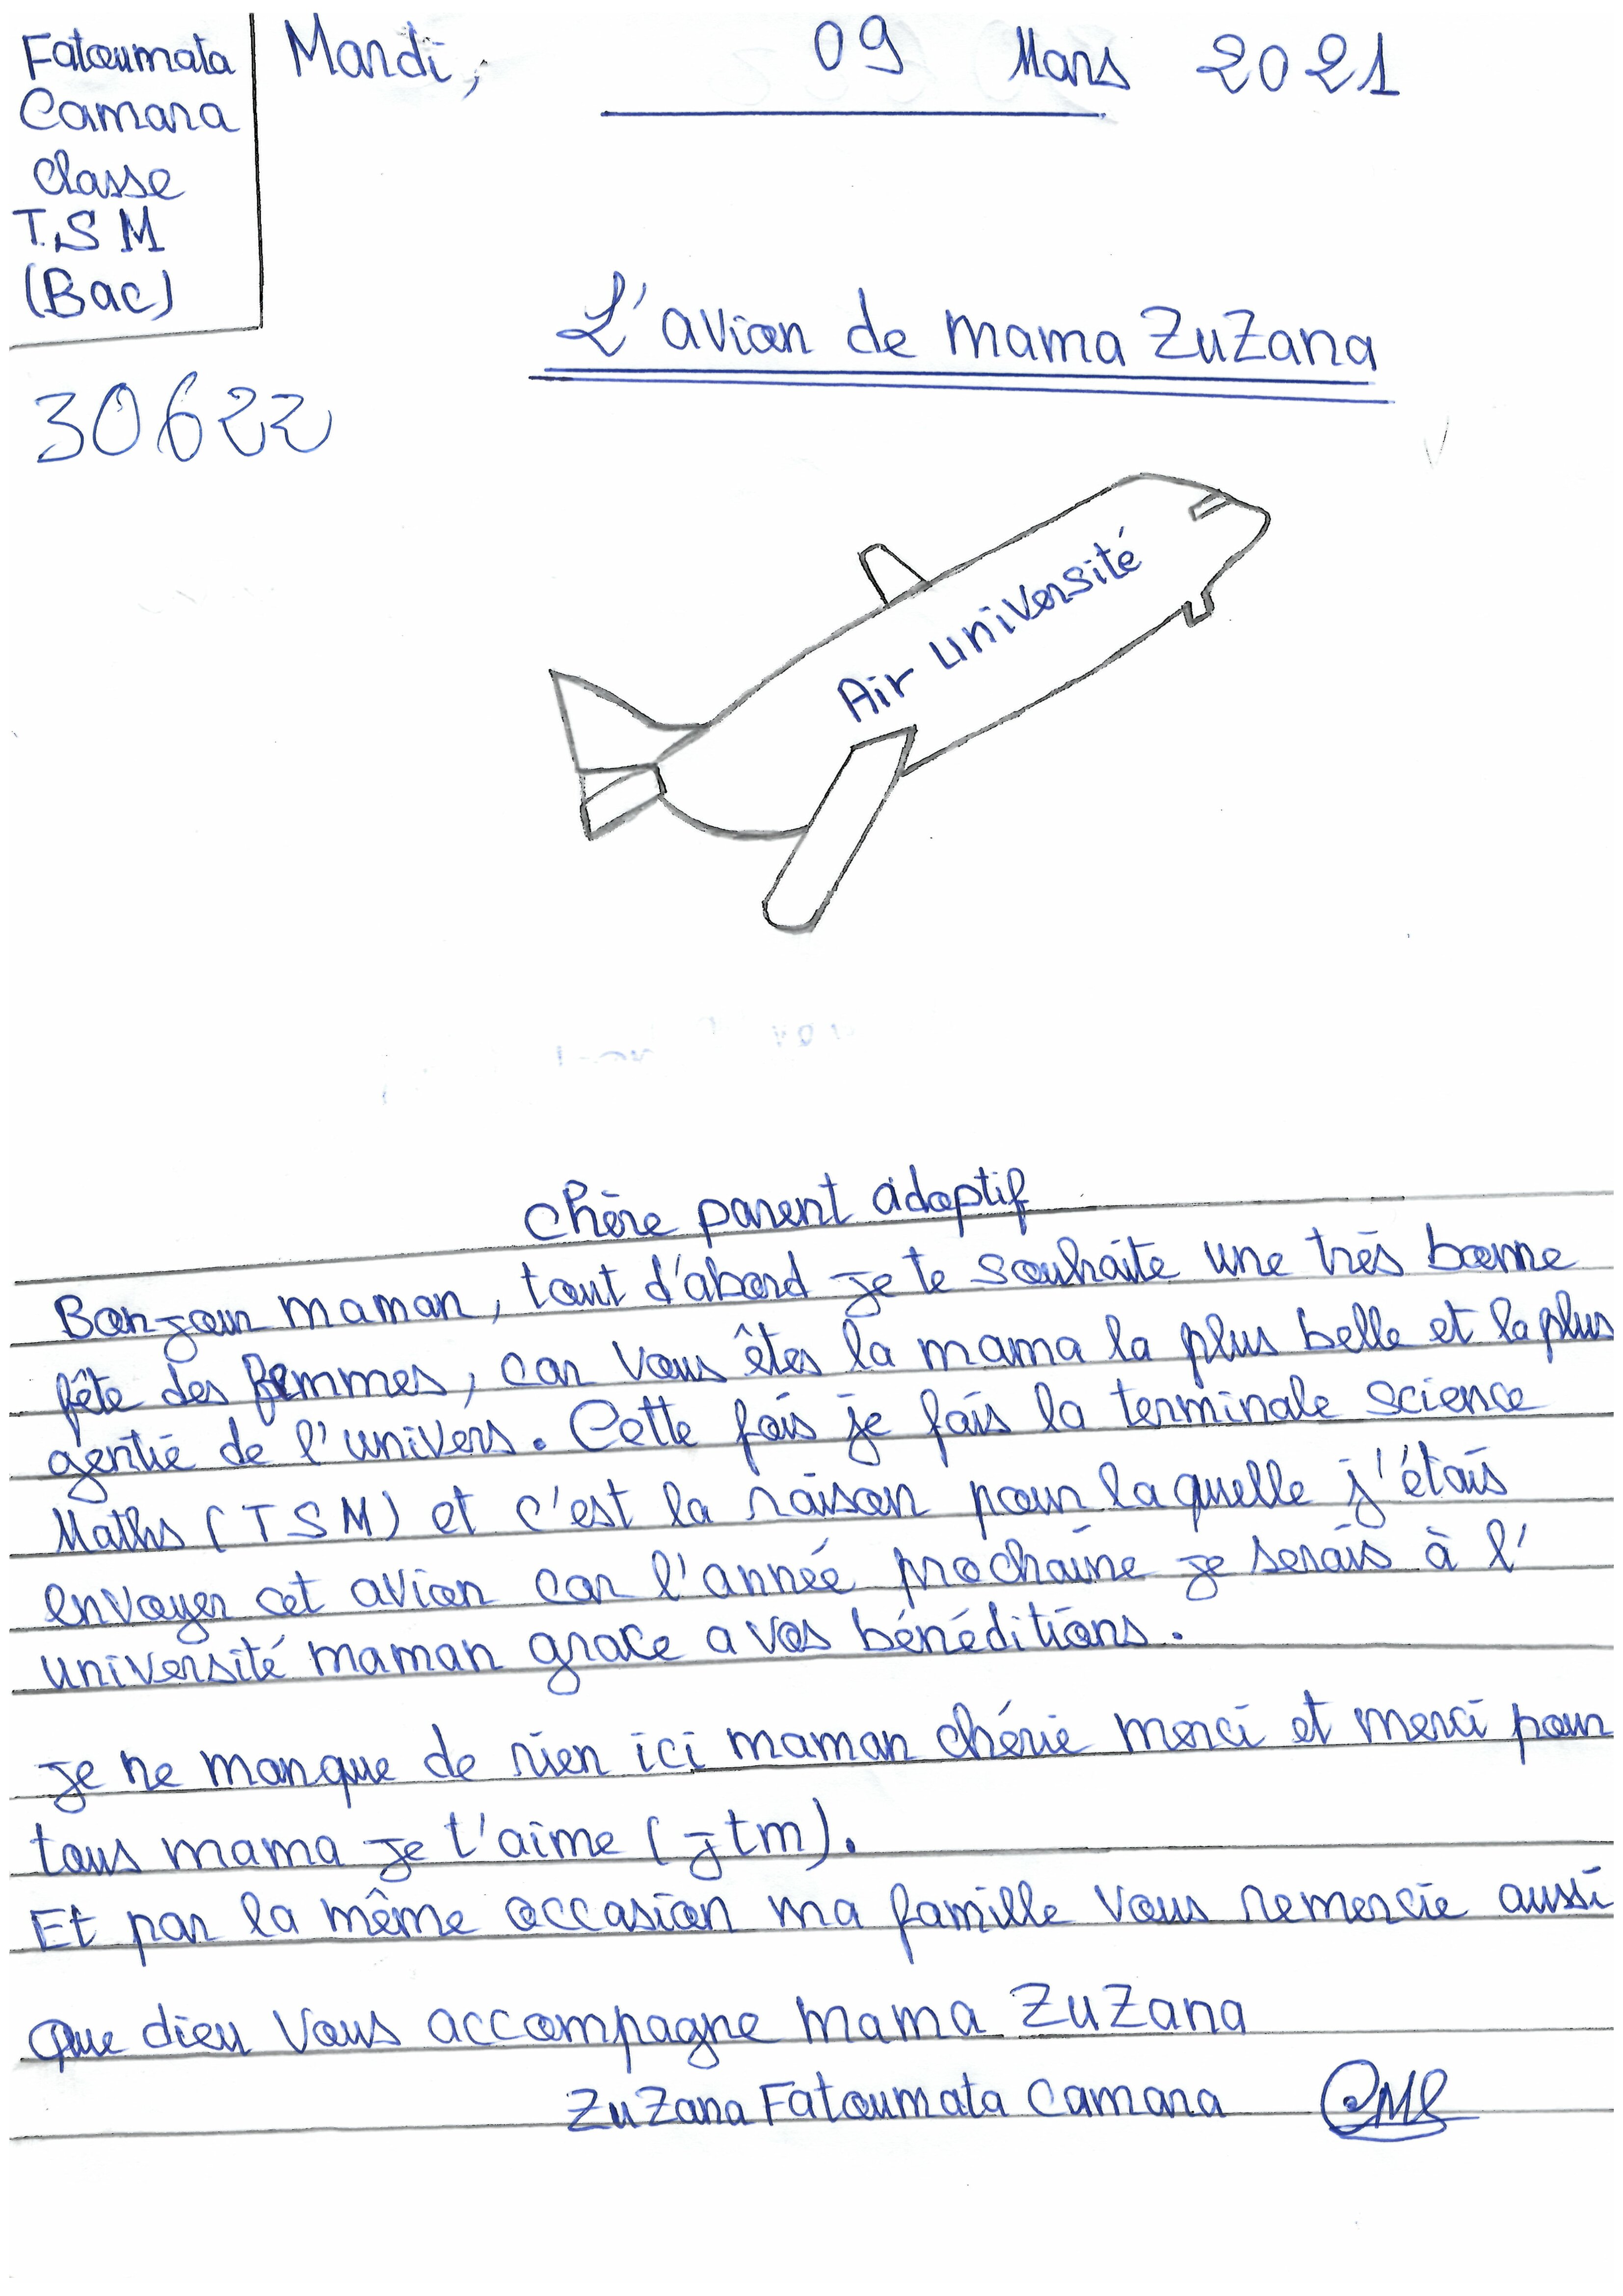 Fatoumata
Camara
Classe
T.S M
(Bac)
30622
Mardi, 09 Mars 2021
L'avion de mama ZuZana
Air université
Chère parent adoptif
Bonjour maman, tout d'abord je te souhaite une très bonne
fête des femmes, car vous êtes la mama la plus belle et la plus
gentie de l'univers. Cette fois je fais la terminale science
Maths (TSM) et c'est la raison pour laquelle j'étais
envoyer cet avion car l'année prochaine je serais à l'
université maman grace a vos bénéditions.
je ne manque de rien ici maman chérie merci et merci pour
tous mama je t'aime (jtm).
Et par la même occasion ma famille vous remercie aussi
Que dieu vous accompagne mama ZuZana
ZuZana Fatoumata Camara